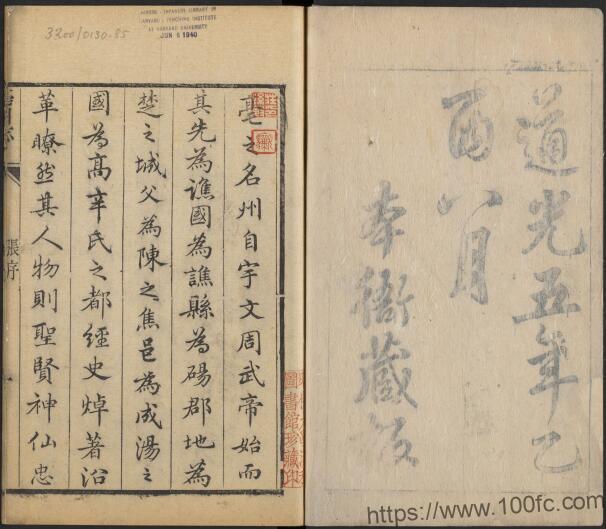 道光五年乙
酉八月
本衙藏板
CHINESE - JAPANESE LIBRARY OF
HARVARD - YENCHING INSTITUTE
AT HARVARD UNIVERSITY
JUN 6 1940
3200/0130.85
亳之名州自宇文周武帝始而
其先為譙國為譙縣為碭郡地為
楚之城父為陳之焦邑為成湯之
國為高辛氏之都經史焯著沿
革瞭然其人物則聖賢神仙忠
張序
圖書館珍藏印
https://www.100fc.com